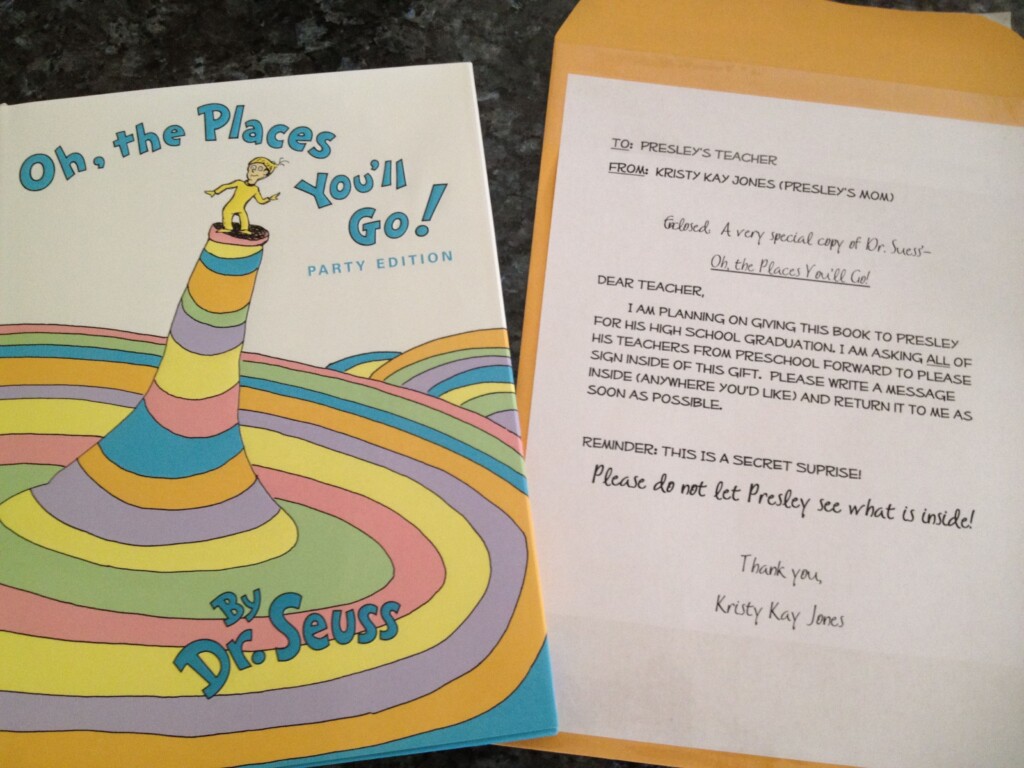 Oh, the Places
You'll
Go!
PARTY EDITION
By
Dr. Seuss
TO: PRESLEY'S TEACHER
FROM: KRISTY KAY JONES (PRESLEY'S MOM)
Enclosed. A very special copy of Dr. Suess'–
Oh, the Places You'll Go!
DEAR TEACHER,
I AM PLANNING ON GIVING THIS BOOK TO PRESLEY
FOR HIS HIGH SCHOOL GRADUATION. I AM ASKING ALL OF
HIS TEACHERS FROM PRESCHOOL FORWARD TO PLEASE
SIGN INSIDE OF THIS GIFT. PLEASE WRITE A MESSAGE
INSIDE (ANYWHERE YOU'D LIKE) AND RETURN IT TO ME AS
SOON AS POSSIBLE.
REMINDER: THIS IS A SECRET SUPRISE!
Please do not let Presley see what is inside!
Thank you,
Kristy Kay Jones